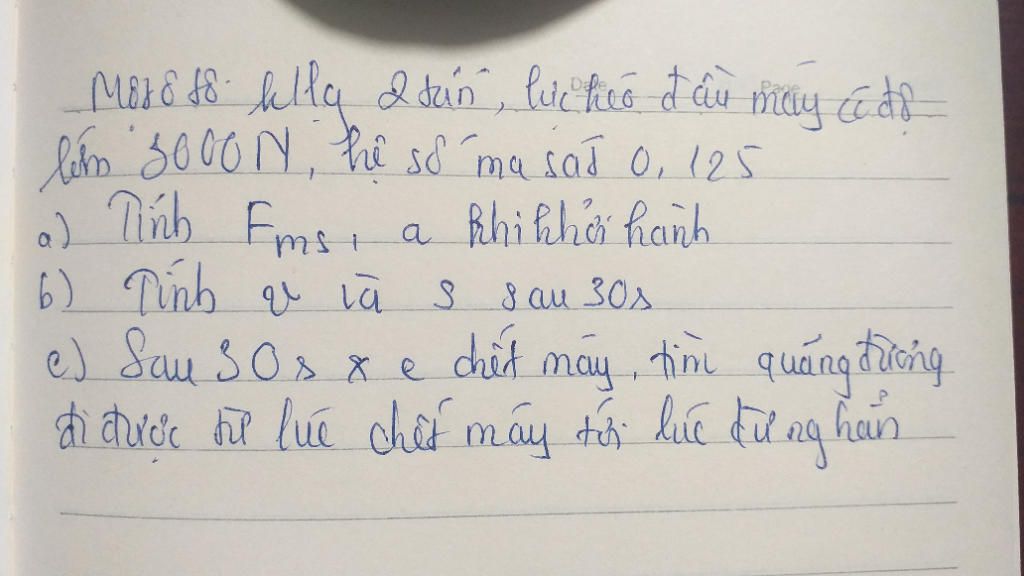 Một ô tô klg 2 tấn, lực kéo đầu máy có độ
lớn 3000N, hệ số ma sát 0,125
a) Tính Fms, a khi khởi hành
b) Tính v và s sau 30s
c) Sau 30s xe chết máy, tìm quãng đường
đi được từ lúc chết máy tới lúc dừng hẳn